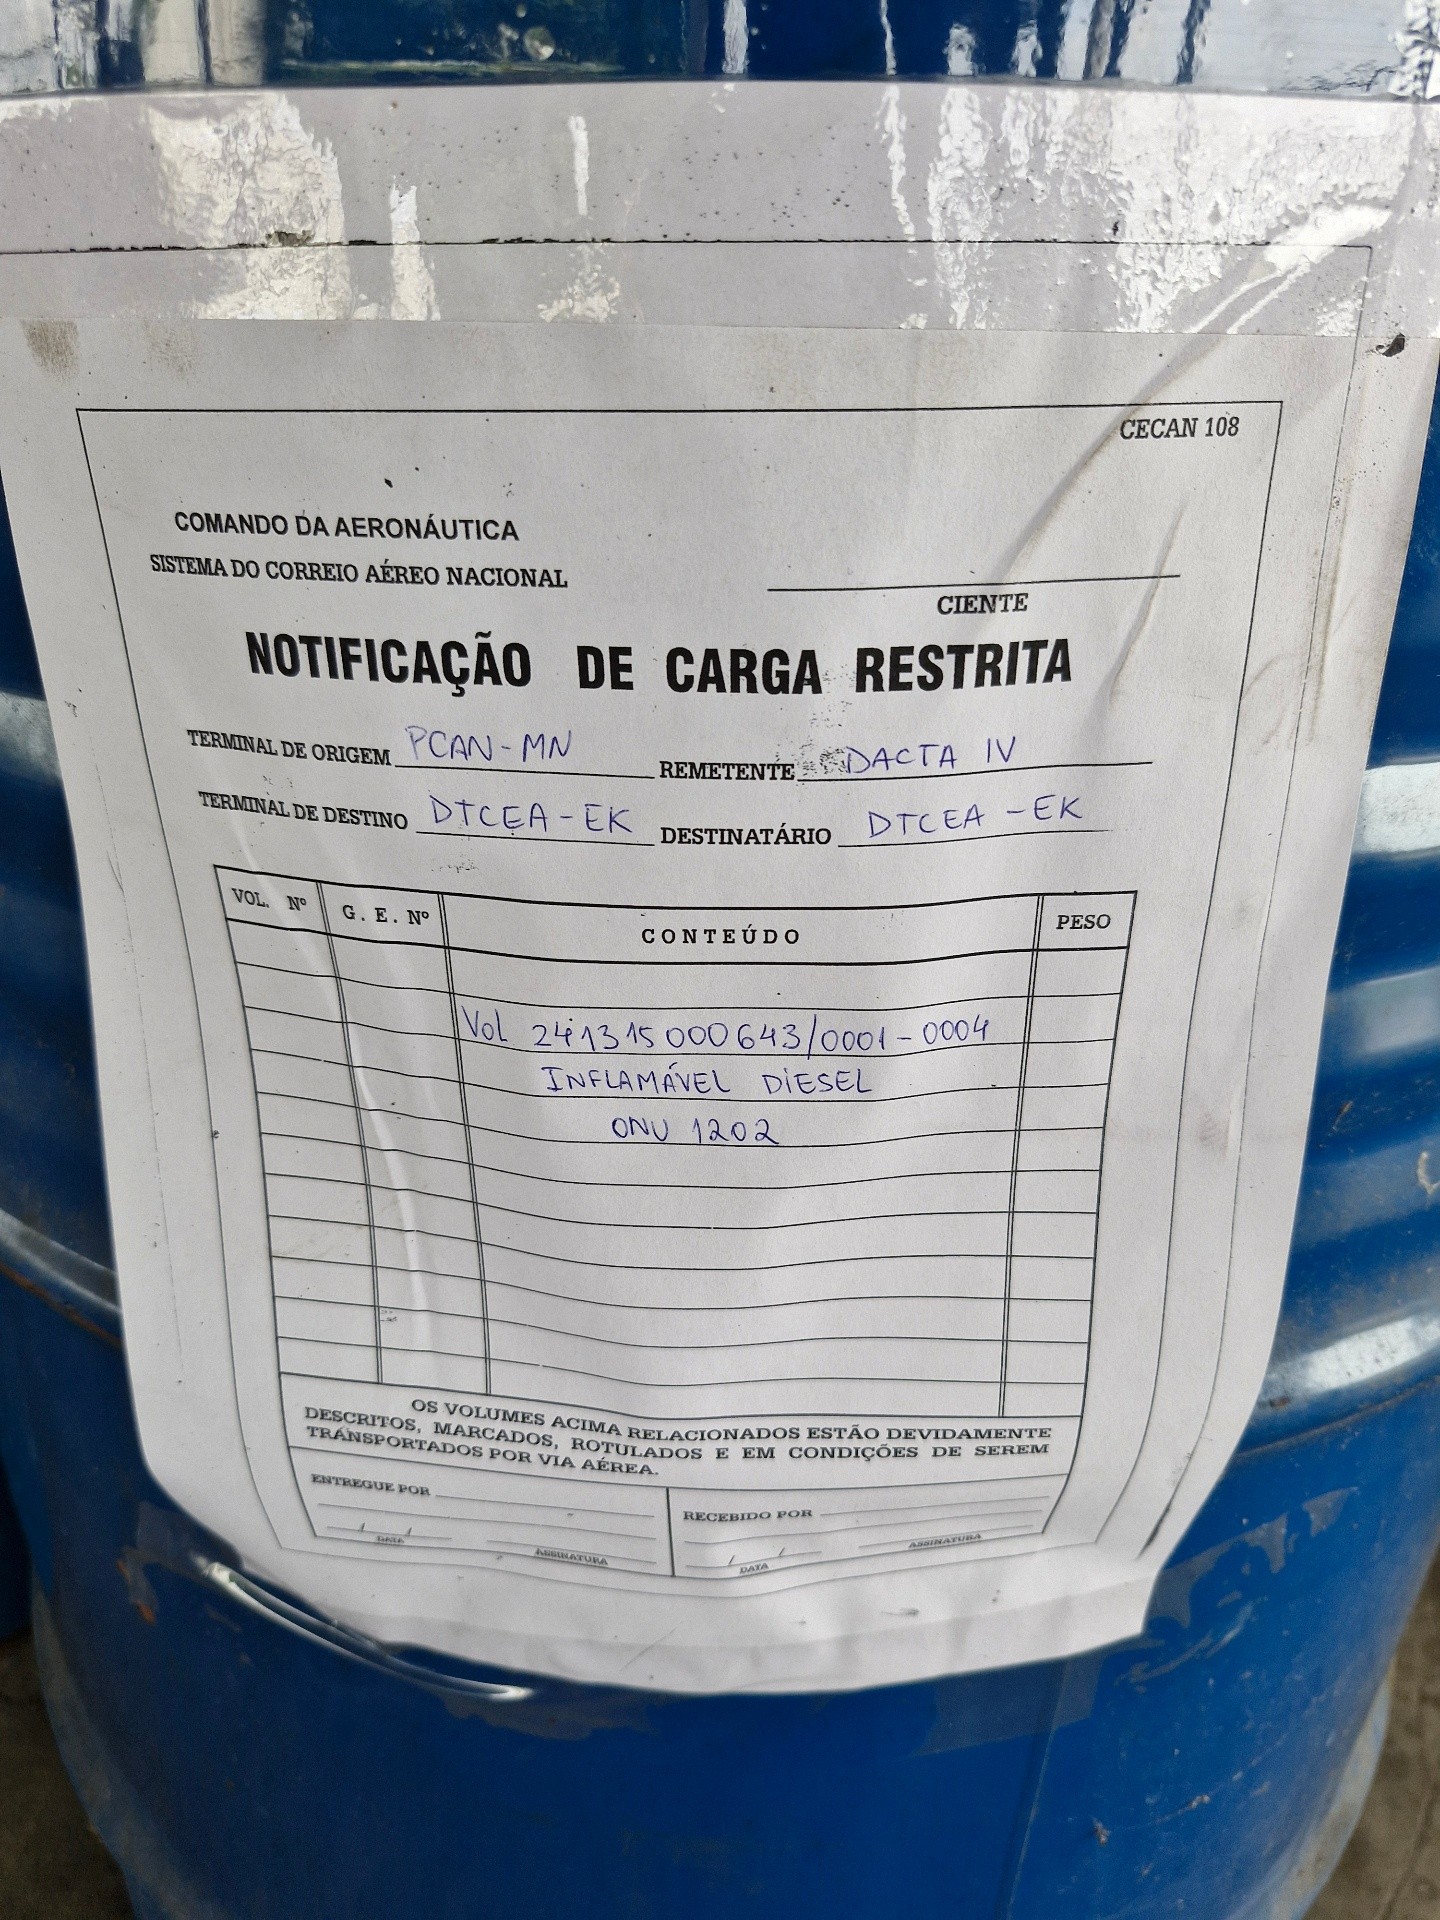 CECAN 108
COMANDO DA AERONÁUTICA
SISTEMA DO CORREIO AÉREO NACIONAL
CIENTE
NOTIFICAÇÃO DE CARGA RESTRITA
TERMINAL DE ORIGEM PCAN-MN REMETENTE DACTA IV
TERMINAL DE DESTINO DTCEA-EK DESTINATÁRIO DTCEA-EK
VOL. Nº G. E. Nº CONTEÚDO PESO
Vol 241315000643/0001-0004
INFLAMÁVEL DIESEL
ONU 1202
OS VOLUMES ACIMA RELACIONADOS ESTÃO DEVIDAMENTE
DESCRITOS, MARCADOS, ROTULADOS E EM CONDIÇÕES DE SEREM
TRANSPORTADOS POR VIA AÉREA.
ENTREGUE POR RECEBIDO POR
/ / / /
DATA ASSINATURA DATA ASSINATURA